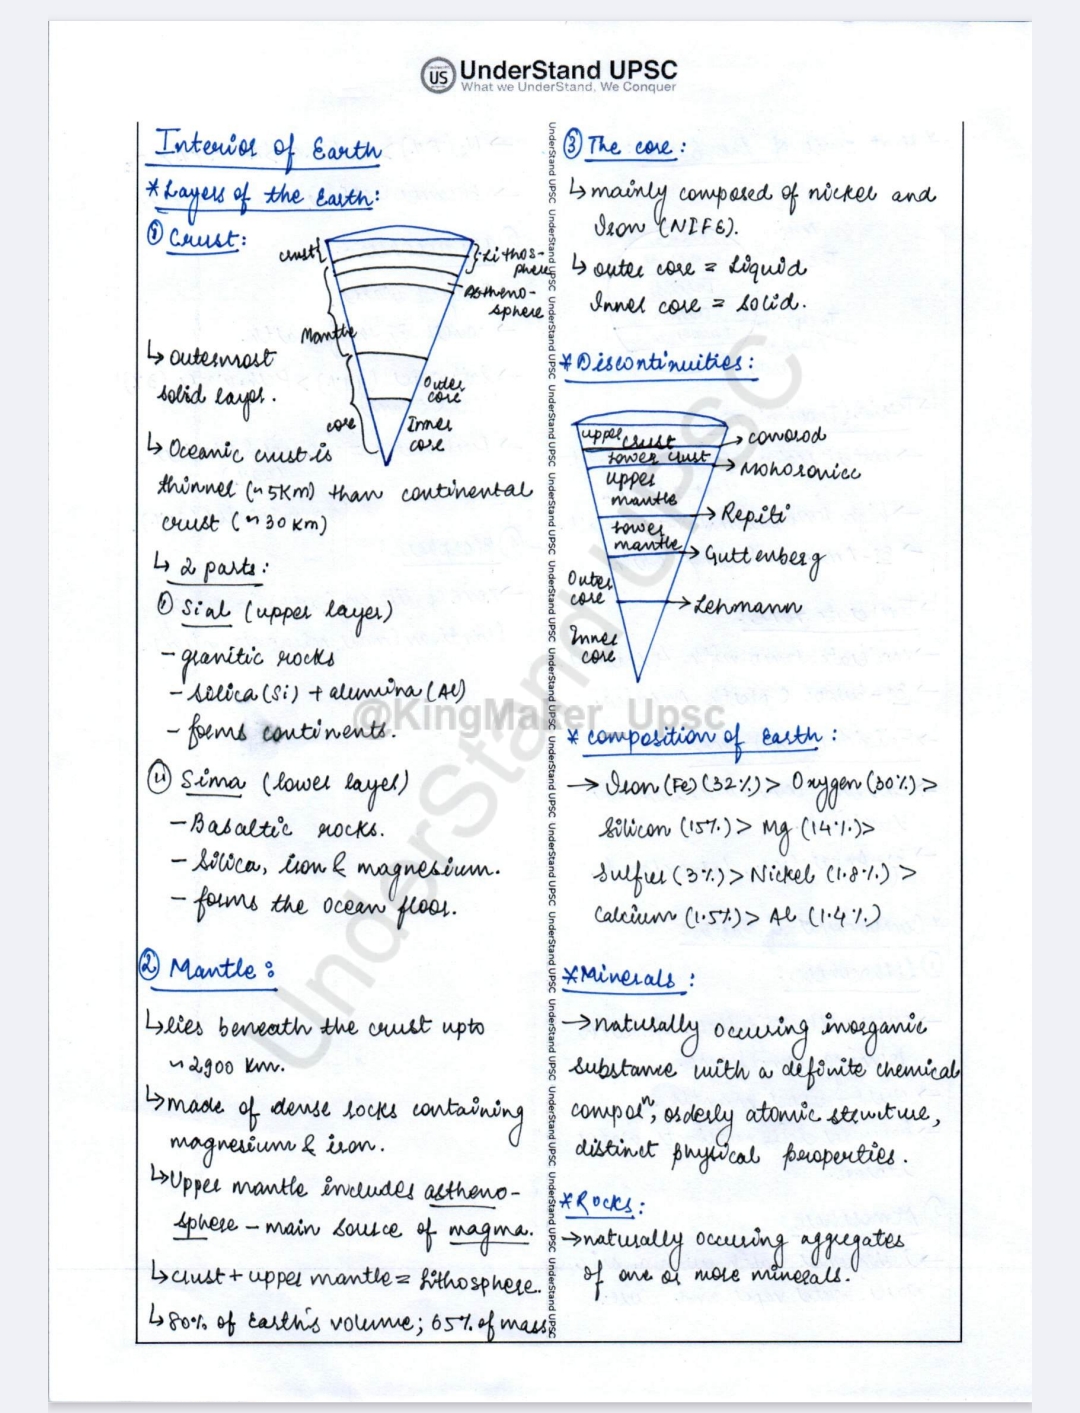 US UnderStand UPSC
What we UnderStand, We Conquer
Interior of Earth
* Layers of the Earth:
① Crust:
crust
Lithos-
phere
Astheno-
sphere
Mantle
Outer
core
core
Inner
core
↳ outermost
solid layer.
↳ Oceanic crust is
thinner (~5Km) than continental
crust (~30 Km)
↳ 2 parts:
① Sial (upper layer)
- granitic rocks
- Silica (Si) + alumina (Al)
- forms continents.
ⅱ Sima (lower layer)
- Basaltic rocks.
- Silica, iron & magnesium.
- forms the ocean floor.
② Mantle:
↳ lies beneath the crust upto
~2900 Km.
↳ made of dense rocks containing
magnesium & iron.
↳ Upper mantle includes astheno-
sphere - main source of magma.
↳ crust + upper mantle = Lithosphere.
↳ 80% of Earth's volume; 65% of mass
UnderStand UPSC UnderStand UPSC UnderStand UPSC UnderStand UPSC UnderStand UPSC UnderStand UPSC UnderStand UPSC UnderStand UPSC UnderStand UPSC UnderStand UPSC UnderStand UPSC UnderStand UPSC UnderStand UPSC UnderStand UPSC
③ The core:
↳ mainly composed of nickel and
Iron (NIFE).
↳ outer core = Liquid
Inner core = solid.
* Discontinuities:
upper crust
→ conorod
lower crust
→ Mohorovicc
upper
mantle
→ Repiti
lower
mantle
→ Guttenberg
Outer
core
→ Lehmann
Inner
core
* composition of Earth:
→ Iron (Fe) (32%) > Oxygen (30%) >
Silicon (15%) > Mg (14%) >
Sulfur (3%) > Nickel (1.8%) >
Calcium (1.5%) > Al (1.4%)
* Minerals:
→ naturally occuring inorganic
substance with a definite chemical
composⁿ, orderly atomic structure,
distinct physical properties.
* Rocks:
→ naturally occuring aggregates
of one or more minerals.
UnderStand UPSC
@KingMaker_Upsc